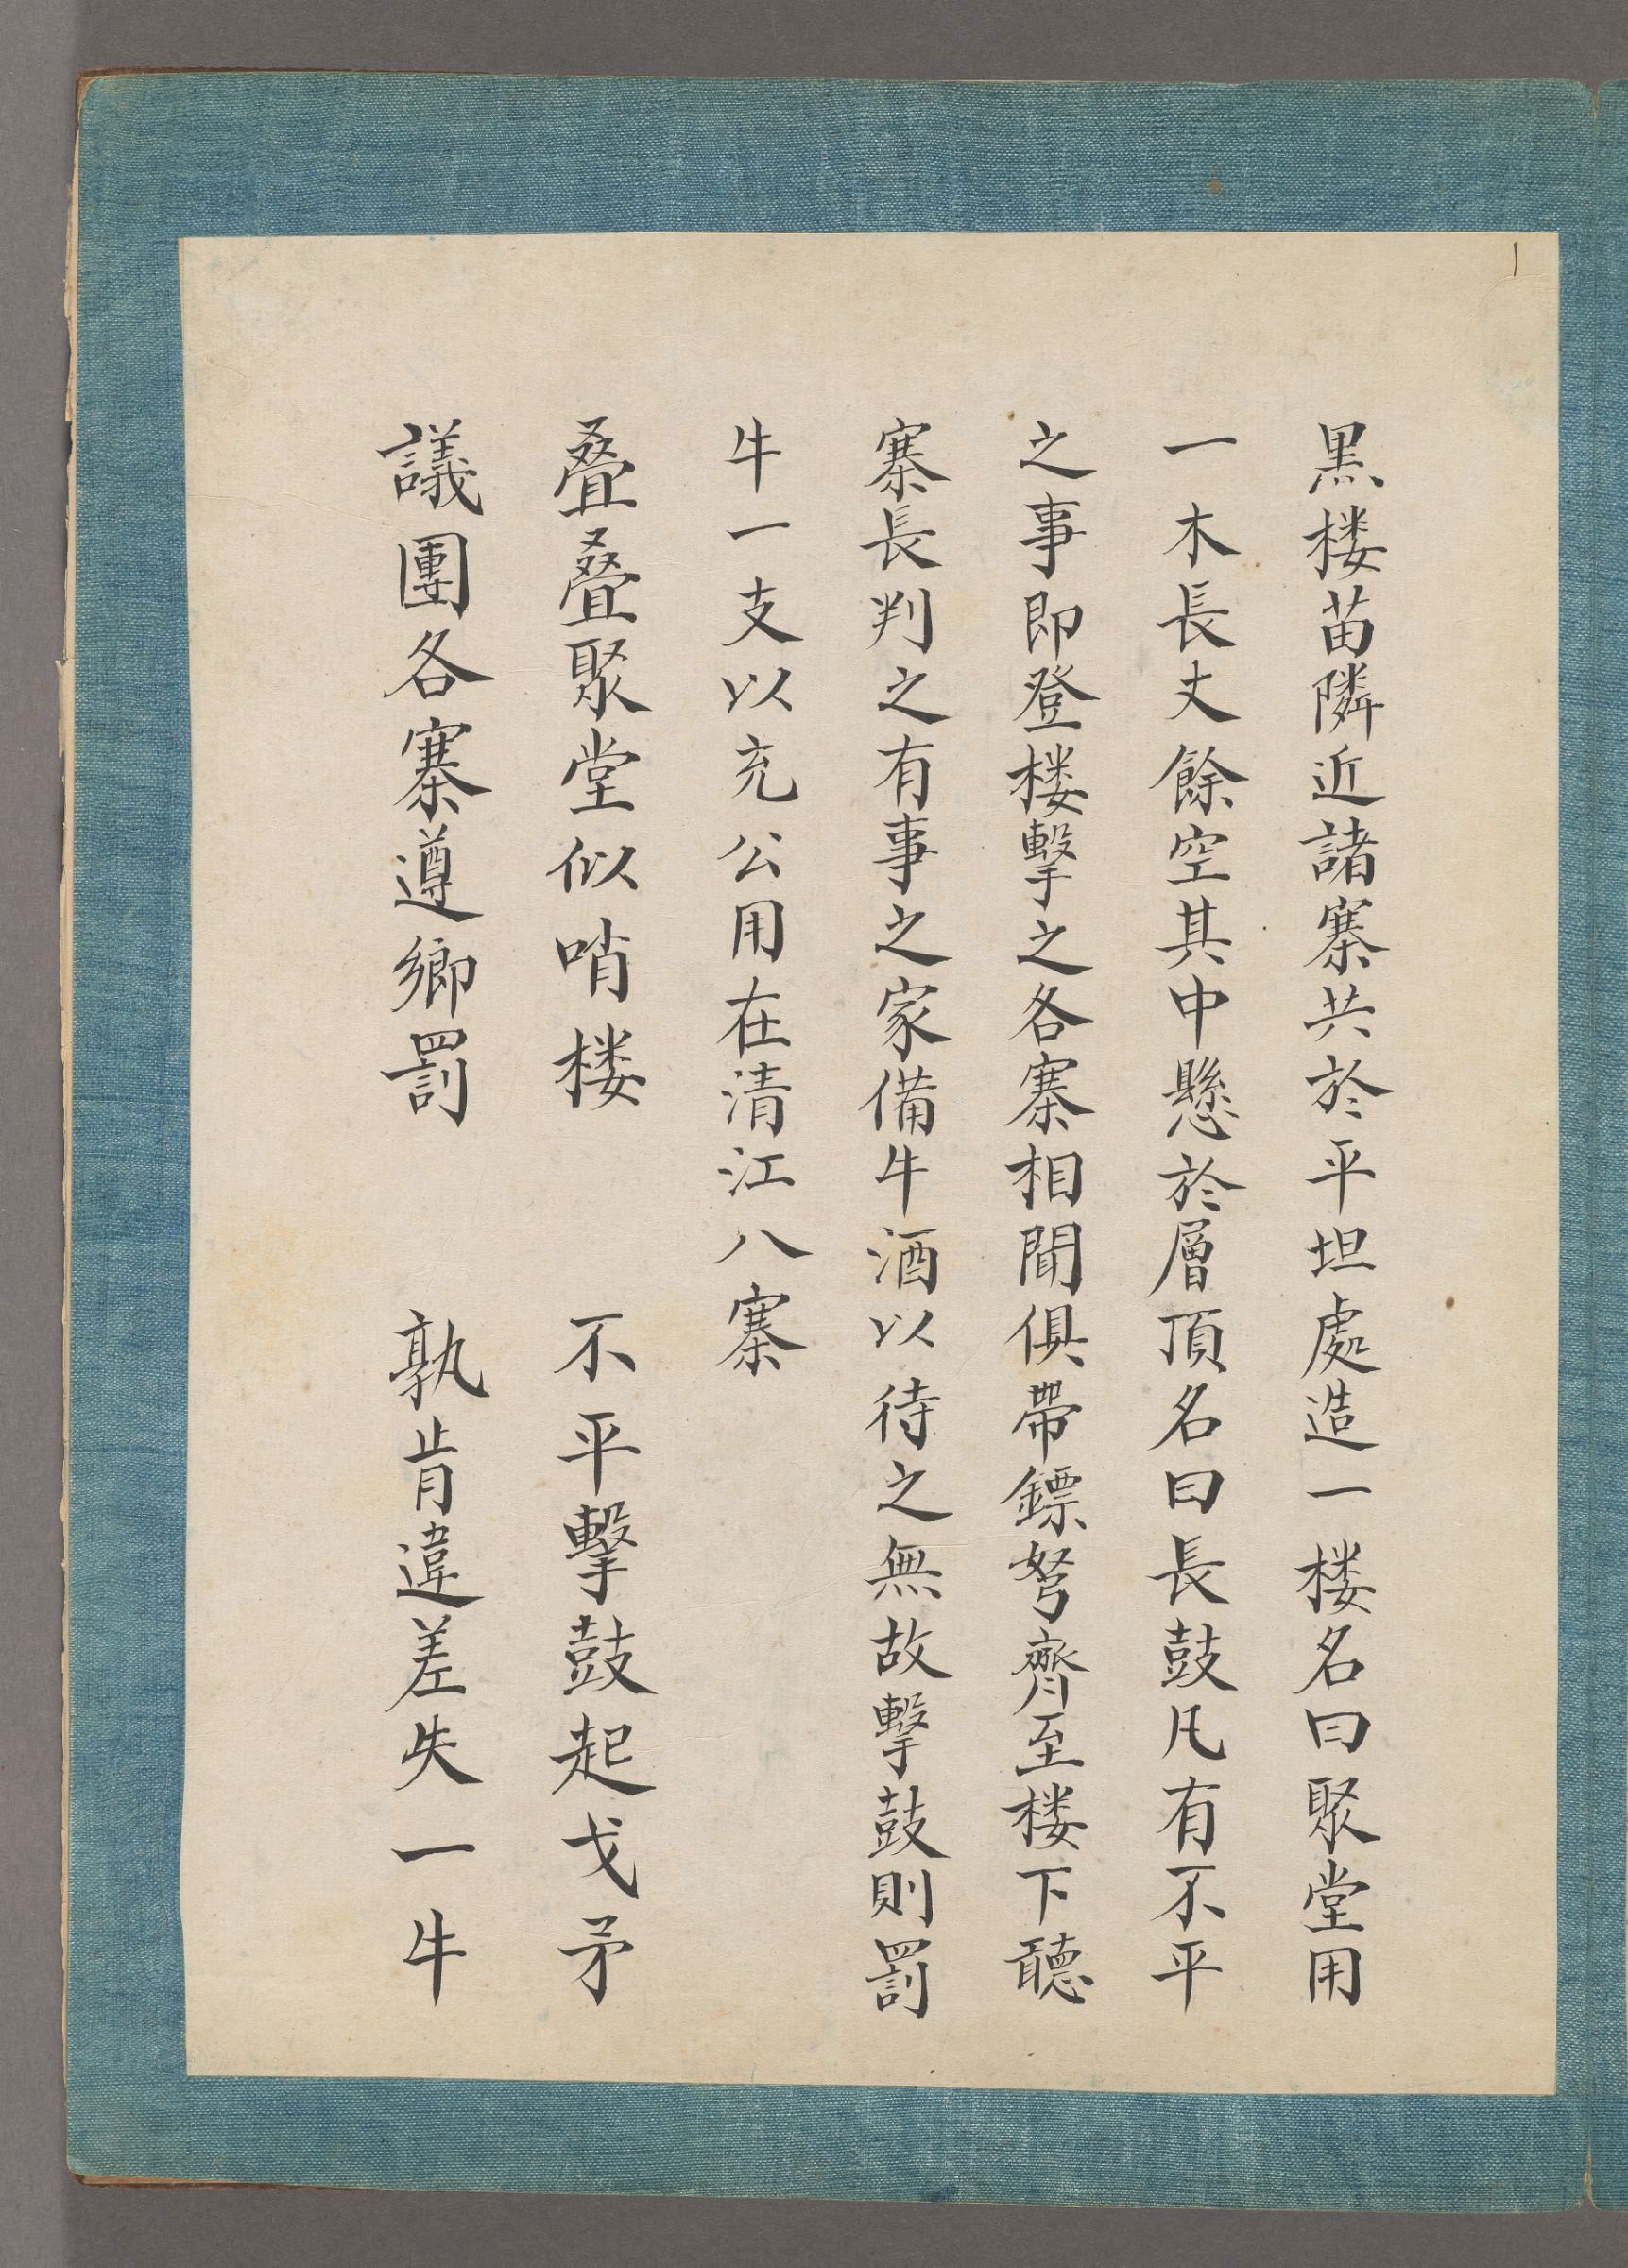 黒楼苗隣近諸寨共於平坦處造一楼名曰聚堂用
一木長丈餘空其中懸於層頂名曰長鼓凡有不平
之事即登楼擊之各寨相聞俱帶鏢弩齊至楼下聽
寨長判之有事之家備牛酒以待之無故擊鼓則罰
牛一支以充公用在清江八寨
叠叠聚堂似哨楼　不平擊鼓起戈矛
議團各寨遵鄉罰　孰肯違差失一牛